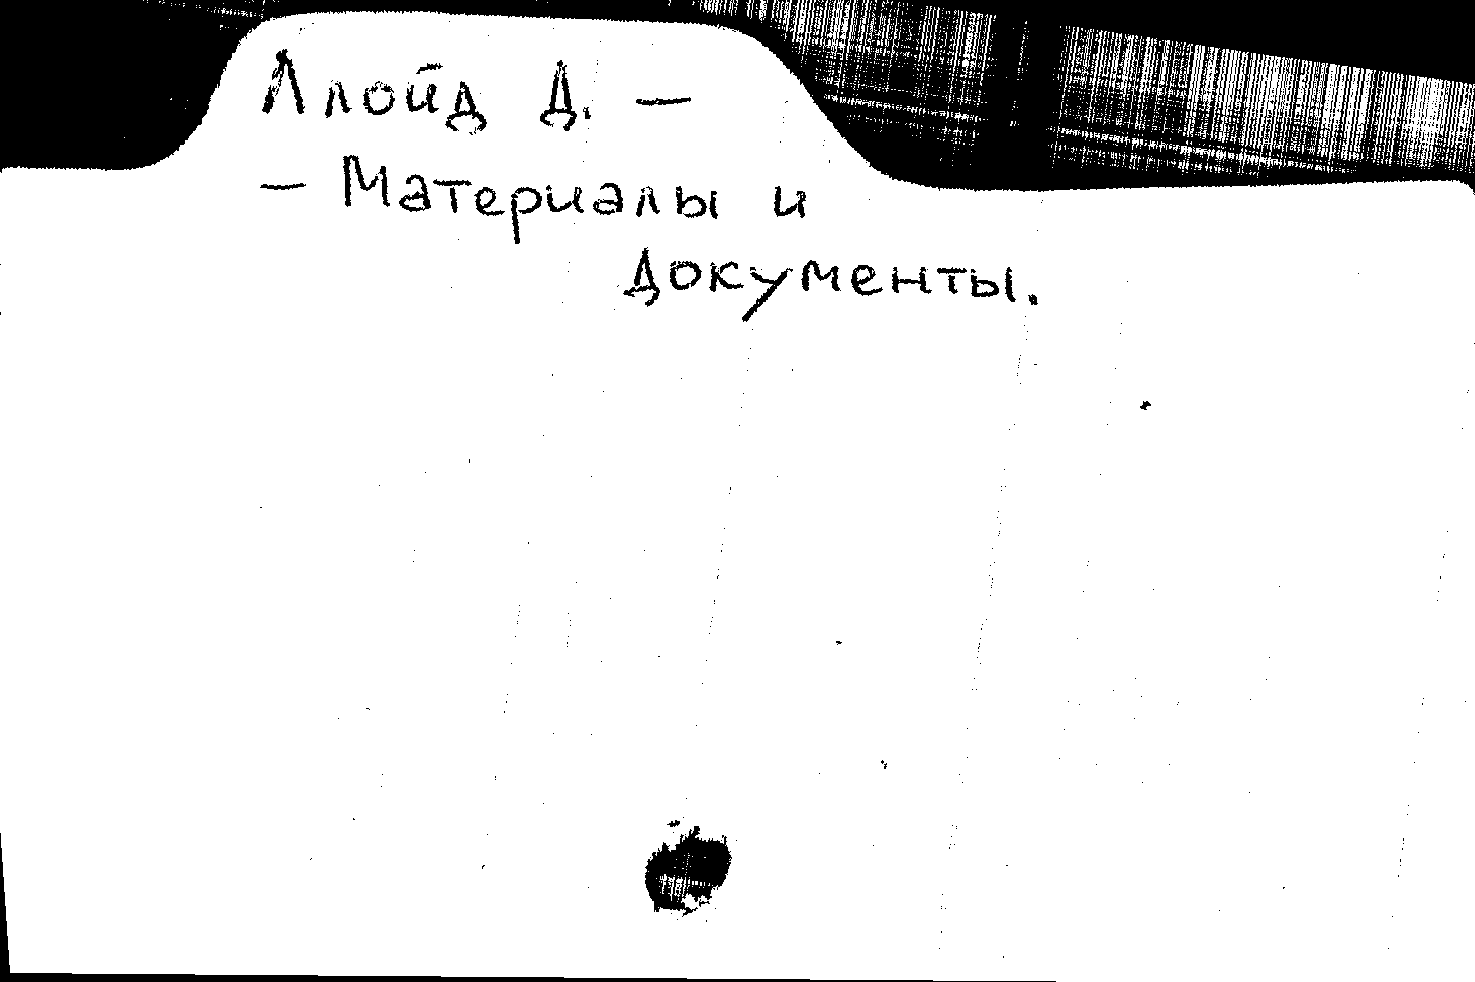 Ллойд Д. —
— Материалы и
документы.